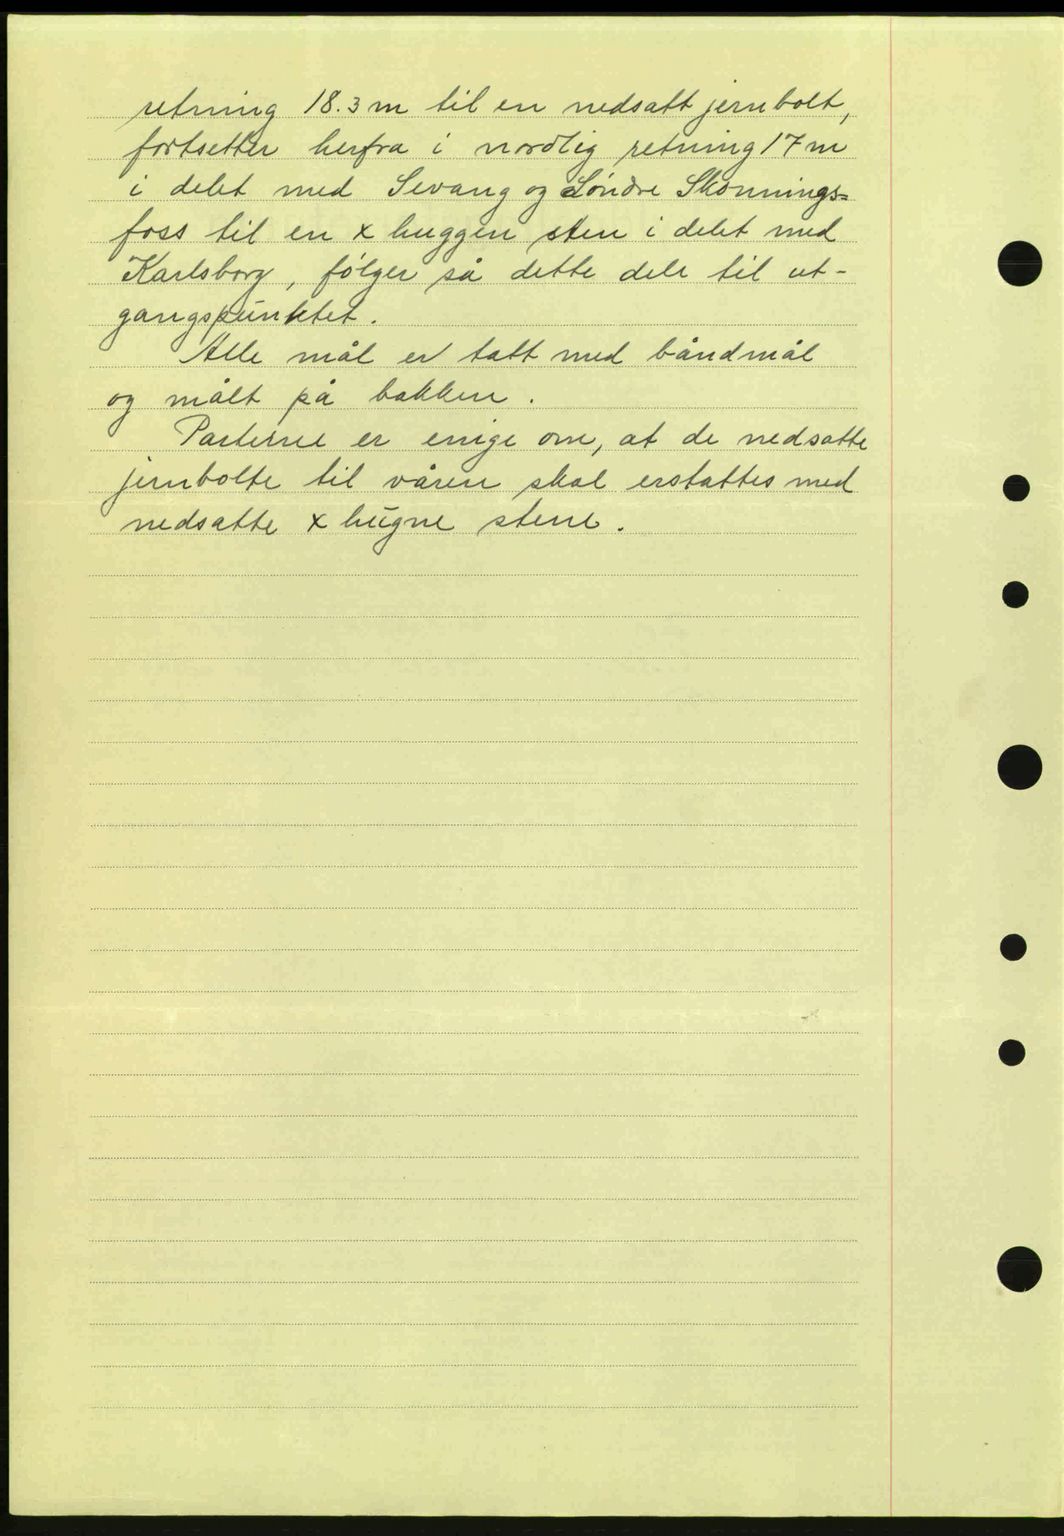 retning 18.3 m til en nedsatt jernbolt,
fortsetter herfra i nordlig retning 17 m
i delet med Sevang og Søndre Skonnings=
foss til en x huggen sten i delet med
Karlsborg, følger så dette dele til ut-
gangspunktet.
Alle mål er tatt med båndmål
og målt på bakken.
Parterne er enige om, at de nedsatte
jernbolte til våren skal erstattes med
nedsatte x hugne stene.